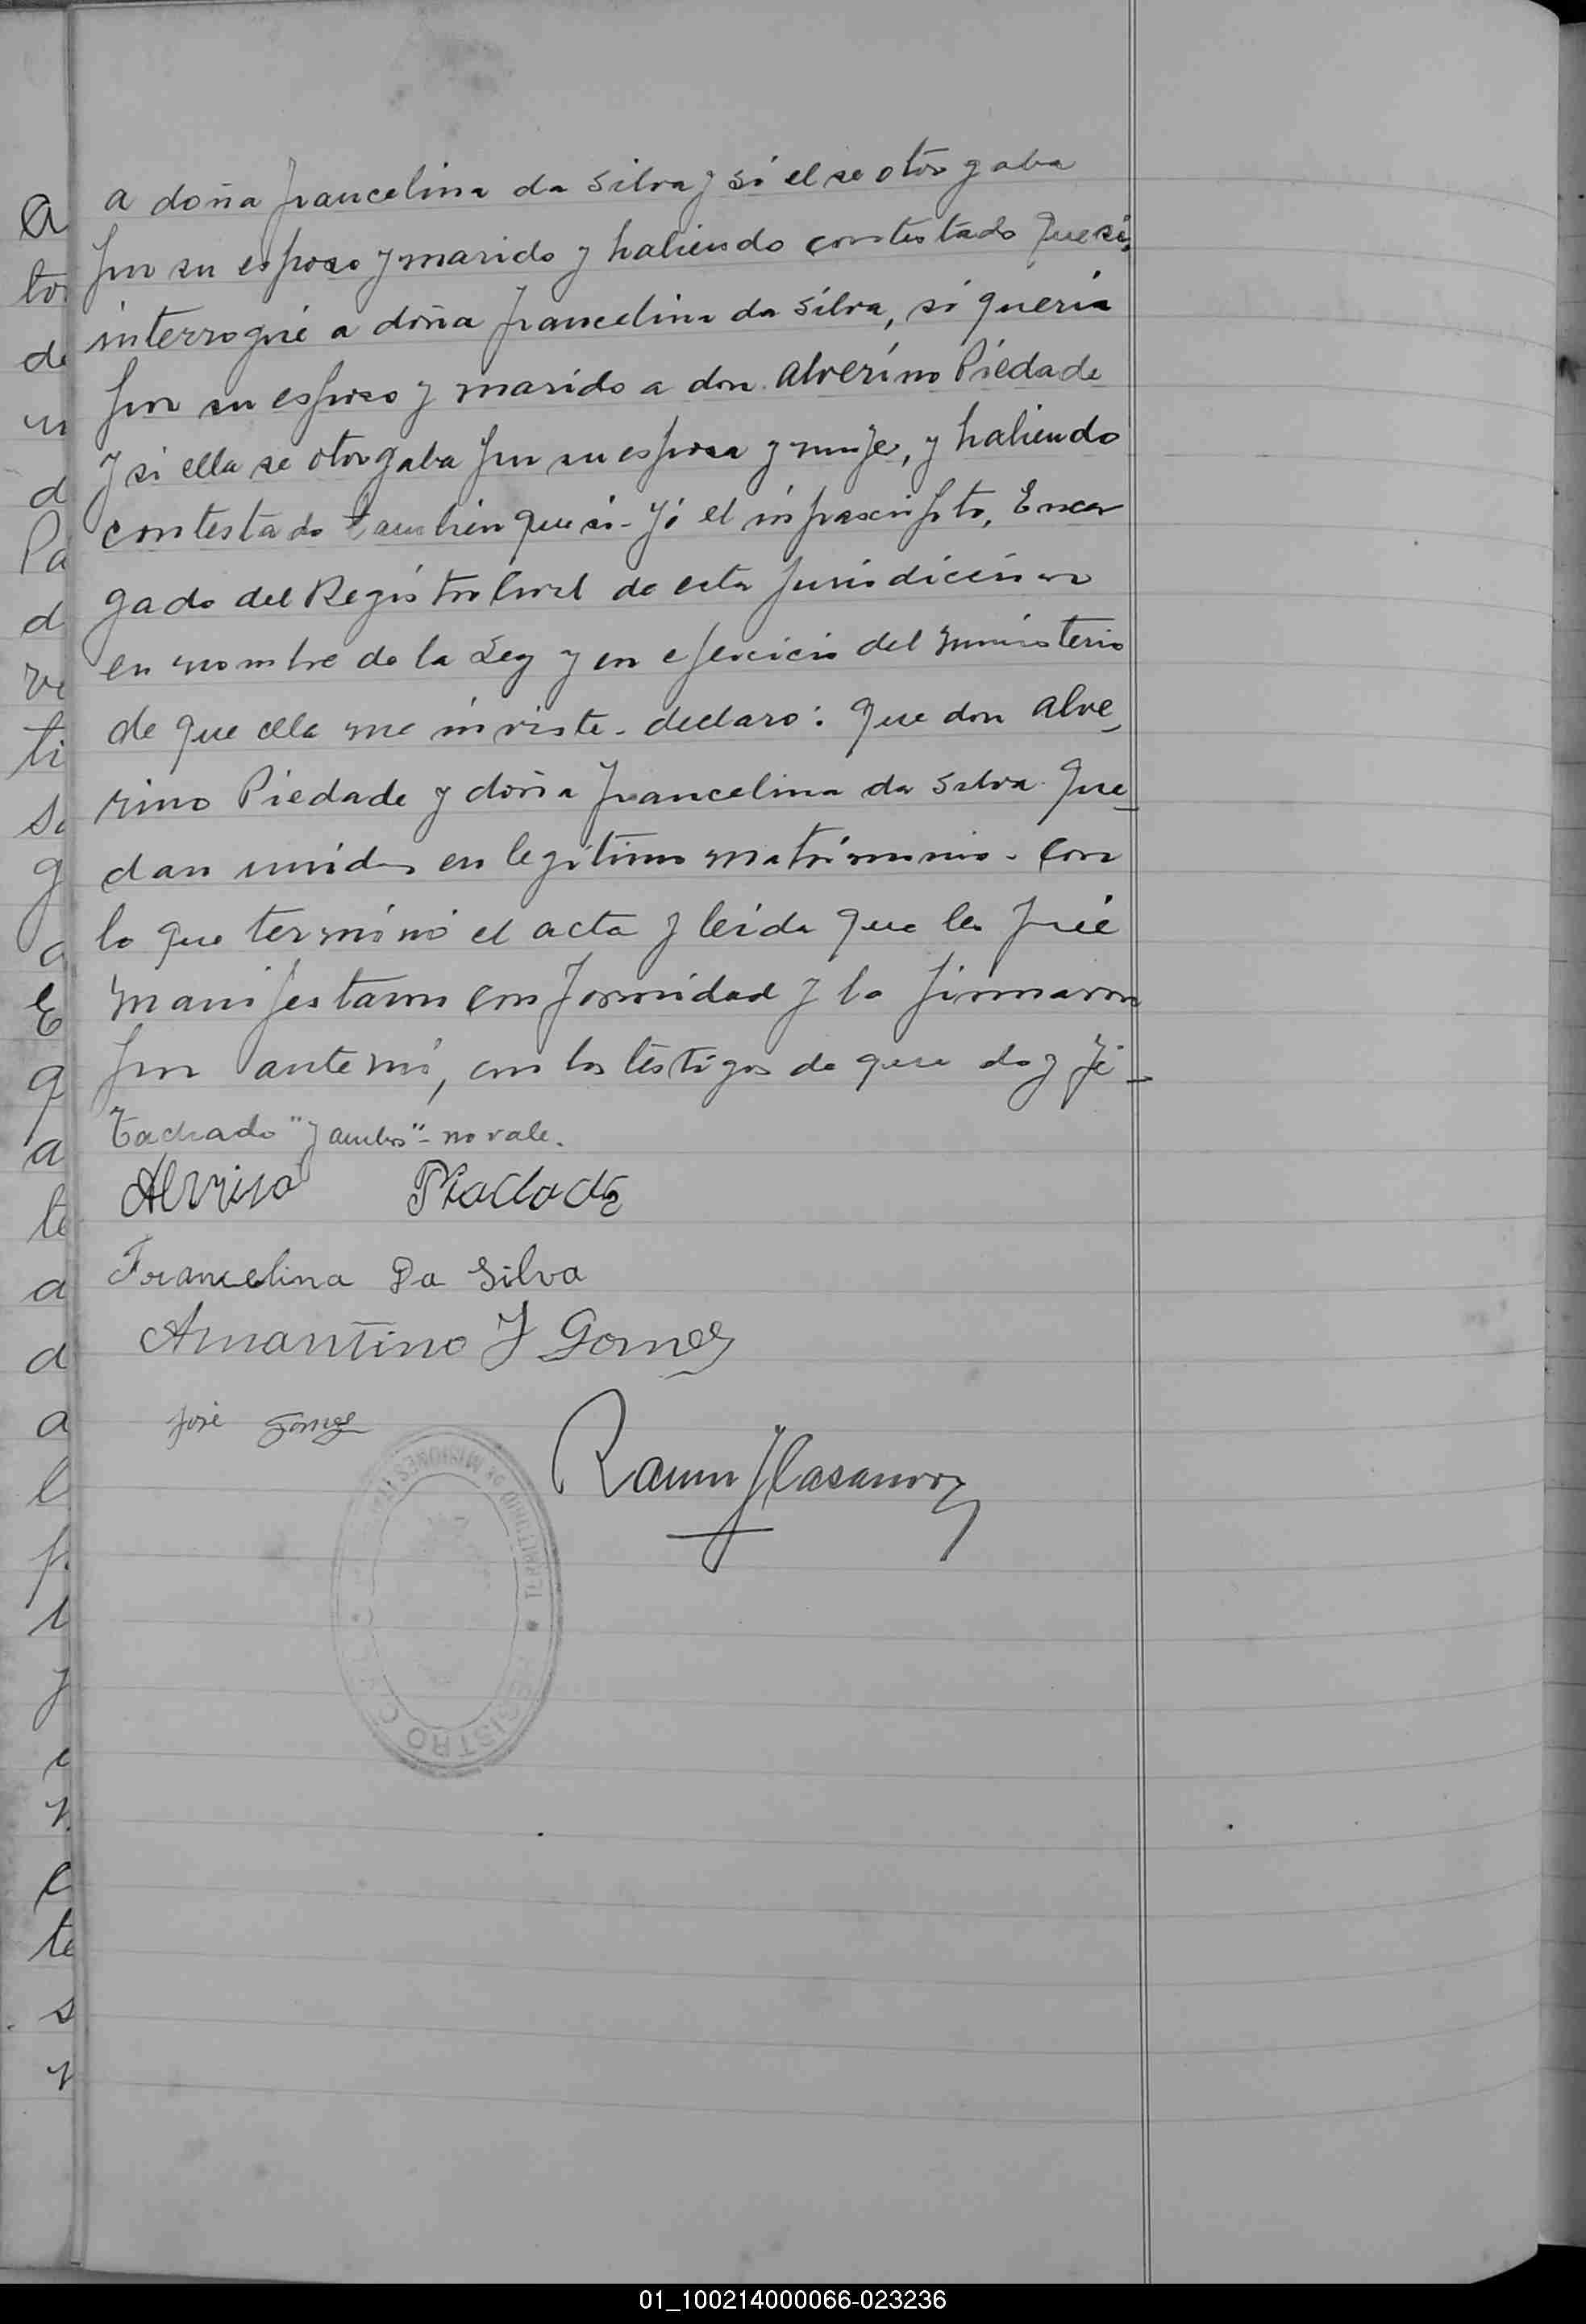 a doña francelina da Silva y si el se otorgaba
por su esposo y marido y habiendo contestado que si,
interrogué a doña francelina da Silva, si queria
por su esposo y marido a don Alverino Piedade
y si ella se otorgaba por su esposa y mujer, y habiendo
contestado tambien que si. Yó el infrascripto, Encar
gado del Registro Civil de esta jurisdicción
en nombre de la Ley y en ejercicio del ministerio
de que ella me inviste. declaro: que don Alve_
rino Piedade y doña francelina da Silva que_
dan unidos en legitimo matrimonio. Con
lo que terminó el acta y leida que les fué
manifestaron conformidad y la firmaron
por ante mí, con los testigos de que doy fé_
Tachado "y ambos" - no vale.
Alvriso Piadade
Francelina Da Silva
Amantino F Gomes
José Gomes
Ramon J Casanova
TERRITORIO DE MISIONES
REGISTRO CIVIL
a
to
de
d
d
ve
ti
g
a
E
q
a
te
a
d
a
l
y
te
s
01_100214000066-023236